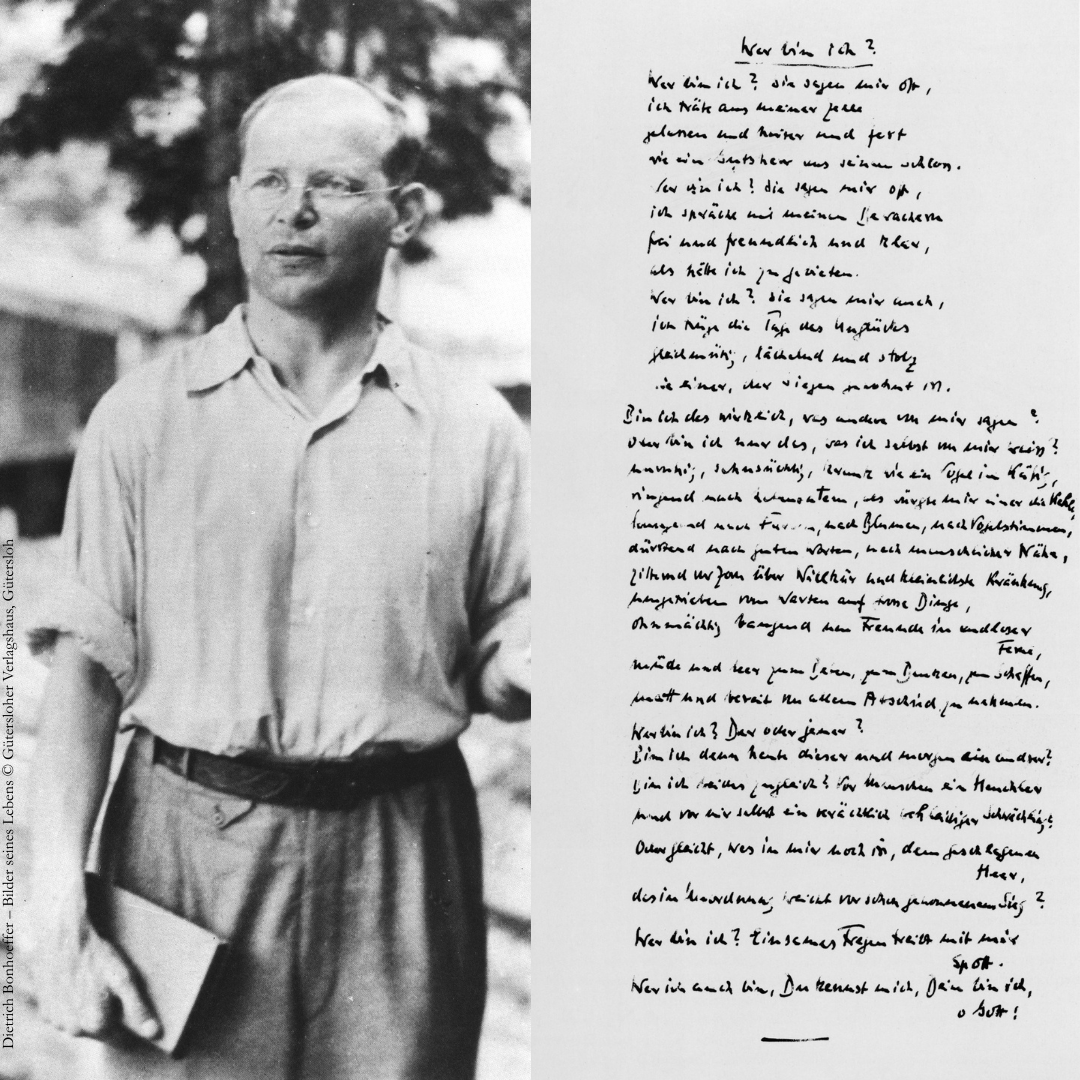 Dietrich Bonhoeffer – Bilder seines Lebens © Gütersloher Verlagshaus, Gütersloh
Wer bin ich?
Wer bin ich? Sie sagen mir oft,
ich träte aus meiner Zelle
gelassen und heiter und fest
wie ein Gutsherr aus seinem Schloss.
Wer bin ich? Sie sagen mir oft,
ich spräche mit meinen Bewachern
frei und freundlich und klar,
als hätte ich zu gebieten.
Wer bin ich? Sie sagen mir auch,
ich trüge die Tage des Unglücks
gleichmütig, lächelnd und stolz
wie einer, der Siegen gewohnt ist.
Bin ich das wirklich, was andere von mir sagen?
Oder bin ich nur das, was ich selbst von mir weiss?
unruhig, sehnsüchtig, krank wie ein Vogel im Käfig,
ringend nach Lebensatem, als würgte mir einer die Kehle,
hungernd nach Farben, nach Blumen, nach Vogelstimmen,
dürstend nach guten Worten, nach menschlicher Nähe,
zitternd vor Zorn über Willkür und kleinlichste Kränkung,
umgetrieben vom Warten auf grosse Dinge,
ohnmächtig bangend um Freunde in endloser
Ferne,
müde und leer zum Beten, zum Denken, zum Schaffen,
matt und bereit von allem Abschied zu nehmen.
Wer bin ich? Der oder jener?
Bin ich denn heute dieser und morgen ein andrer?
Bin ich beides zugleich? Vor Menschen ein Heuchler
und vor mir selbst ein verächlich wehleidiger Schwächling?
Oder gleicht, was in mir noch ist, dem geschlagenen
Heer,
das in Unordnung weicht vor schon gewonnenem Sieg?
Wer bin ich? Einsames Fragen treibt mit mir
Spott.
Wer ich auch bin, Du kennst mich, Dein bin ich,
o Gott!